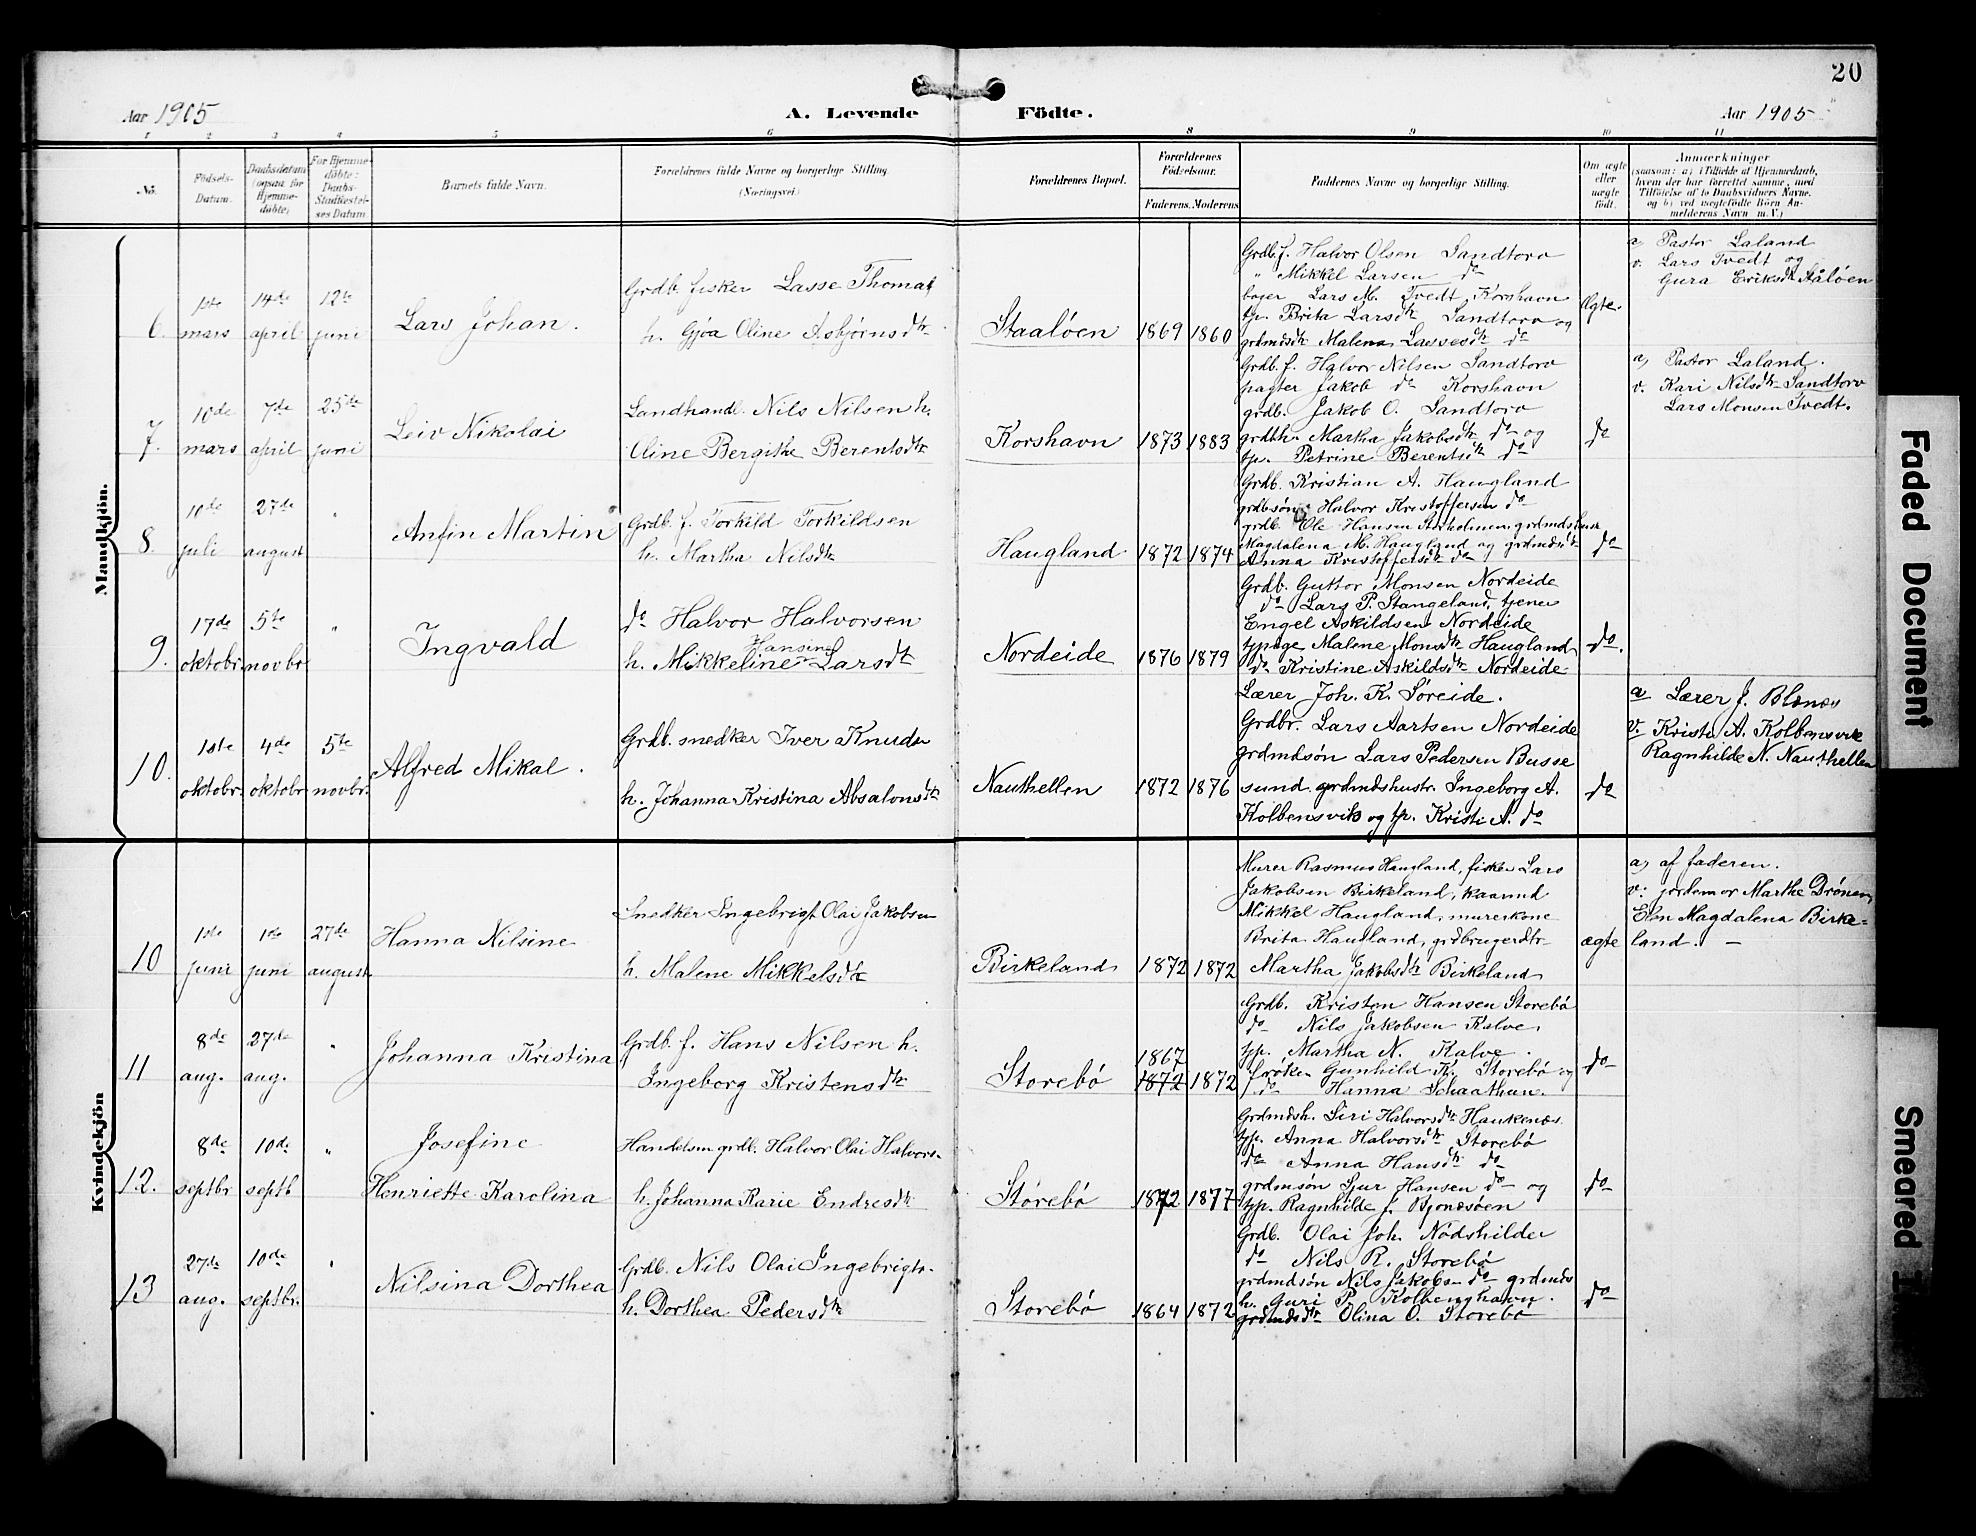 20
Aar 1905
A. Levende Födte.
Aar 1905
1 2 3 4 5 6 8 9 10 11
No.
Födsels-
Datum.
Daabsdatum
(ogsaa for
Hjemme-
döbte)
For Hjemme-
döbte:
Daabs-
Stadfæstel-
ses Datum
Barnets fulde Navn.
Forældrenes fulde Navne og borgerlige Stilling.
(Næringsvei.)
Forældrenes Bopæl.
Forældrenes
Födselsaar.
Faderens. Moderens
Faddernes Navne og borgerlig Stilling.
Om ægte
eller
uægte
födt.
Anmærkninger
(saasom: a) i Tilfælde af Hjemmedaab,
hvem der har forrettet samme, med
Tilföielse af to Daabsvidners Navne.
og b) ved uægtefödte Börn An-
melderens Navn m.V.)
Mandkjön.
6.
1ste
mars
14de
april
12te
juni
Lars Johan.
Grdb. fisker Lasse Thomas
h. Gjøa Oline Asbjørnsdtr.
Staaløen
1869
1860
Grdb. f. Halvor Olsen Sandtorv
" Mikkel Larsen do
bager Lars M. Tvedt, Korshavn
tp. Brita Larsdtr Sandtorv og
grdmdsdtr Malena Lassesdtr do
Ægte.
a, Pastor Laland
v. Lars Tvedt og
Gura Eriksdtr Staløen
7.
10de
mars
7de
april
25de
juni
Leiv Nikolai
Landhandl. Nils Nilsen h.
Oline Bergithe Berentsdtr
Korshavn
1873
1883
Grdb. f. Halvor Nilsen Sandtorv
pagter Jakob do Korshavn
grdb. Jakob O. Sandtorv
grdbh. Martha Jakobsdtr do og
tp. Petrine Berentsdtr do
do
a, Pastor Laland.
v. Kari Nilsdtr Sandtorv
Lars Monsen Tvedt.
8.
10de
juli
27de
august
"
Anfin Martin
Grdb. f. Torkild Torkildsen
h. Martha Nilsdtr
Haugland
1872
1874
Grdb. Kristian A. Haugland
grdb.søn Halvor Kristoffersen do
grdb. Ole Hansen Storholmen, grdmdshustr
Magdalena M. Haugland og grdmdsdtr
Anna Kristoffersdtr do
do
9.
17de
oktobr.
5te
novbr
"
Ingvald
do Halvor Halvorsen
Hansine
h. Mikkeline Larsdtr
Nordeide
1876
1879
Grdb. Guttor Monsen Nordeide
do Lars P. Stangeland, tjener
Engel Askildsen Nordeide
tjpige Malene Monsdtr Haugland
do Kristine Askildsdtr Nordeide
do.
10.
1ste
oktobr.
4de
oktobr
5te
novbr.
Alfred Mikal.
Grdb. snedker Iver Knuds
h. Johanna Kristina Absalonsdtr
Nauthellen
1872
1876
Lærer Joh. K. Søreide.
Grdbr. Lars Aartsen Nordeide
grdmdsøn Lars Pedersen Busse
sund. grdmdshustr. Ingeborg A.
Kolbensvik og tp. Kristi A. do
do
a Lærer J. Blænes
v. Kristi A. Kolbensvik
Ragnhilde N. Nauthellen
Kvindekjön
10
1ste
juni
1ste
juni
27de
august
Hanna Nilsine
Snedker Ingebrigt Olai Jakobsen
h. Malene Mikkelsdtr
Birkeland
1872
1872
Murer Rasmus Haugland, fisker Lars
Jakobsen Birkeland, kaarmd
Mikkel Haugland, murerkone
Brita Haugland, grdbrugerdtr.
Martha Jakobsdtr Birkeland
ægte
a, af faderen.
v: jordemor Marthe Drønen,
Elen Magdalena Birke-
land. —
11
8de
aug.
27de
aug.
"
Johanna Kristina
Grdb. f. Hans Nilsen h.
Ingeborg Kristensdtr
Storebø
1867
1872
1872
Grdb. Kristen Hansen Storebø
do Nils Jakobsen Kalve
tp. Martha N. Kalve.
frøken Gunhild K. Storebø og
do Hanna Schaathun.
do
12.
8de
septbr
10de
septb
"
Josefine
Henriette Karolina
Handelsm grdb. Halvor Olai Halvors.
h. Johanna Karie Endresdtr
Størebø
1872
1877
Grdmdsh. Siri Halvorsdtr Haukenæs.
tp. Anna Halvorsdtr Storebø
do Anna Hansdtr do
grdmsøn Sjur Hansen do og
tp. Ragnhilde J. Bjonesøen
do
13
27de
aug.
10de
septbr.
"
Nilsina Dorthea
Grdb. Nils Olai Ingebrigts.
h. Dorthea Pedersdtr
Storebø
1864
1872
Grdb. Olai Joh. Nødshilder
do Nils R. Storebø
grdmdsøn Nils Jakobs. do grdmds
h. Guri P. Kolbenghavn.
grdmdsdtr Olina O. Storebø
do
Faded Document
Smeared